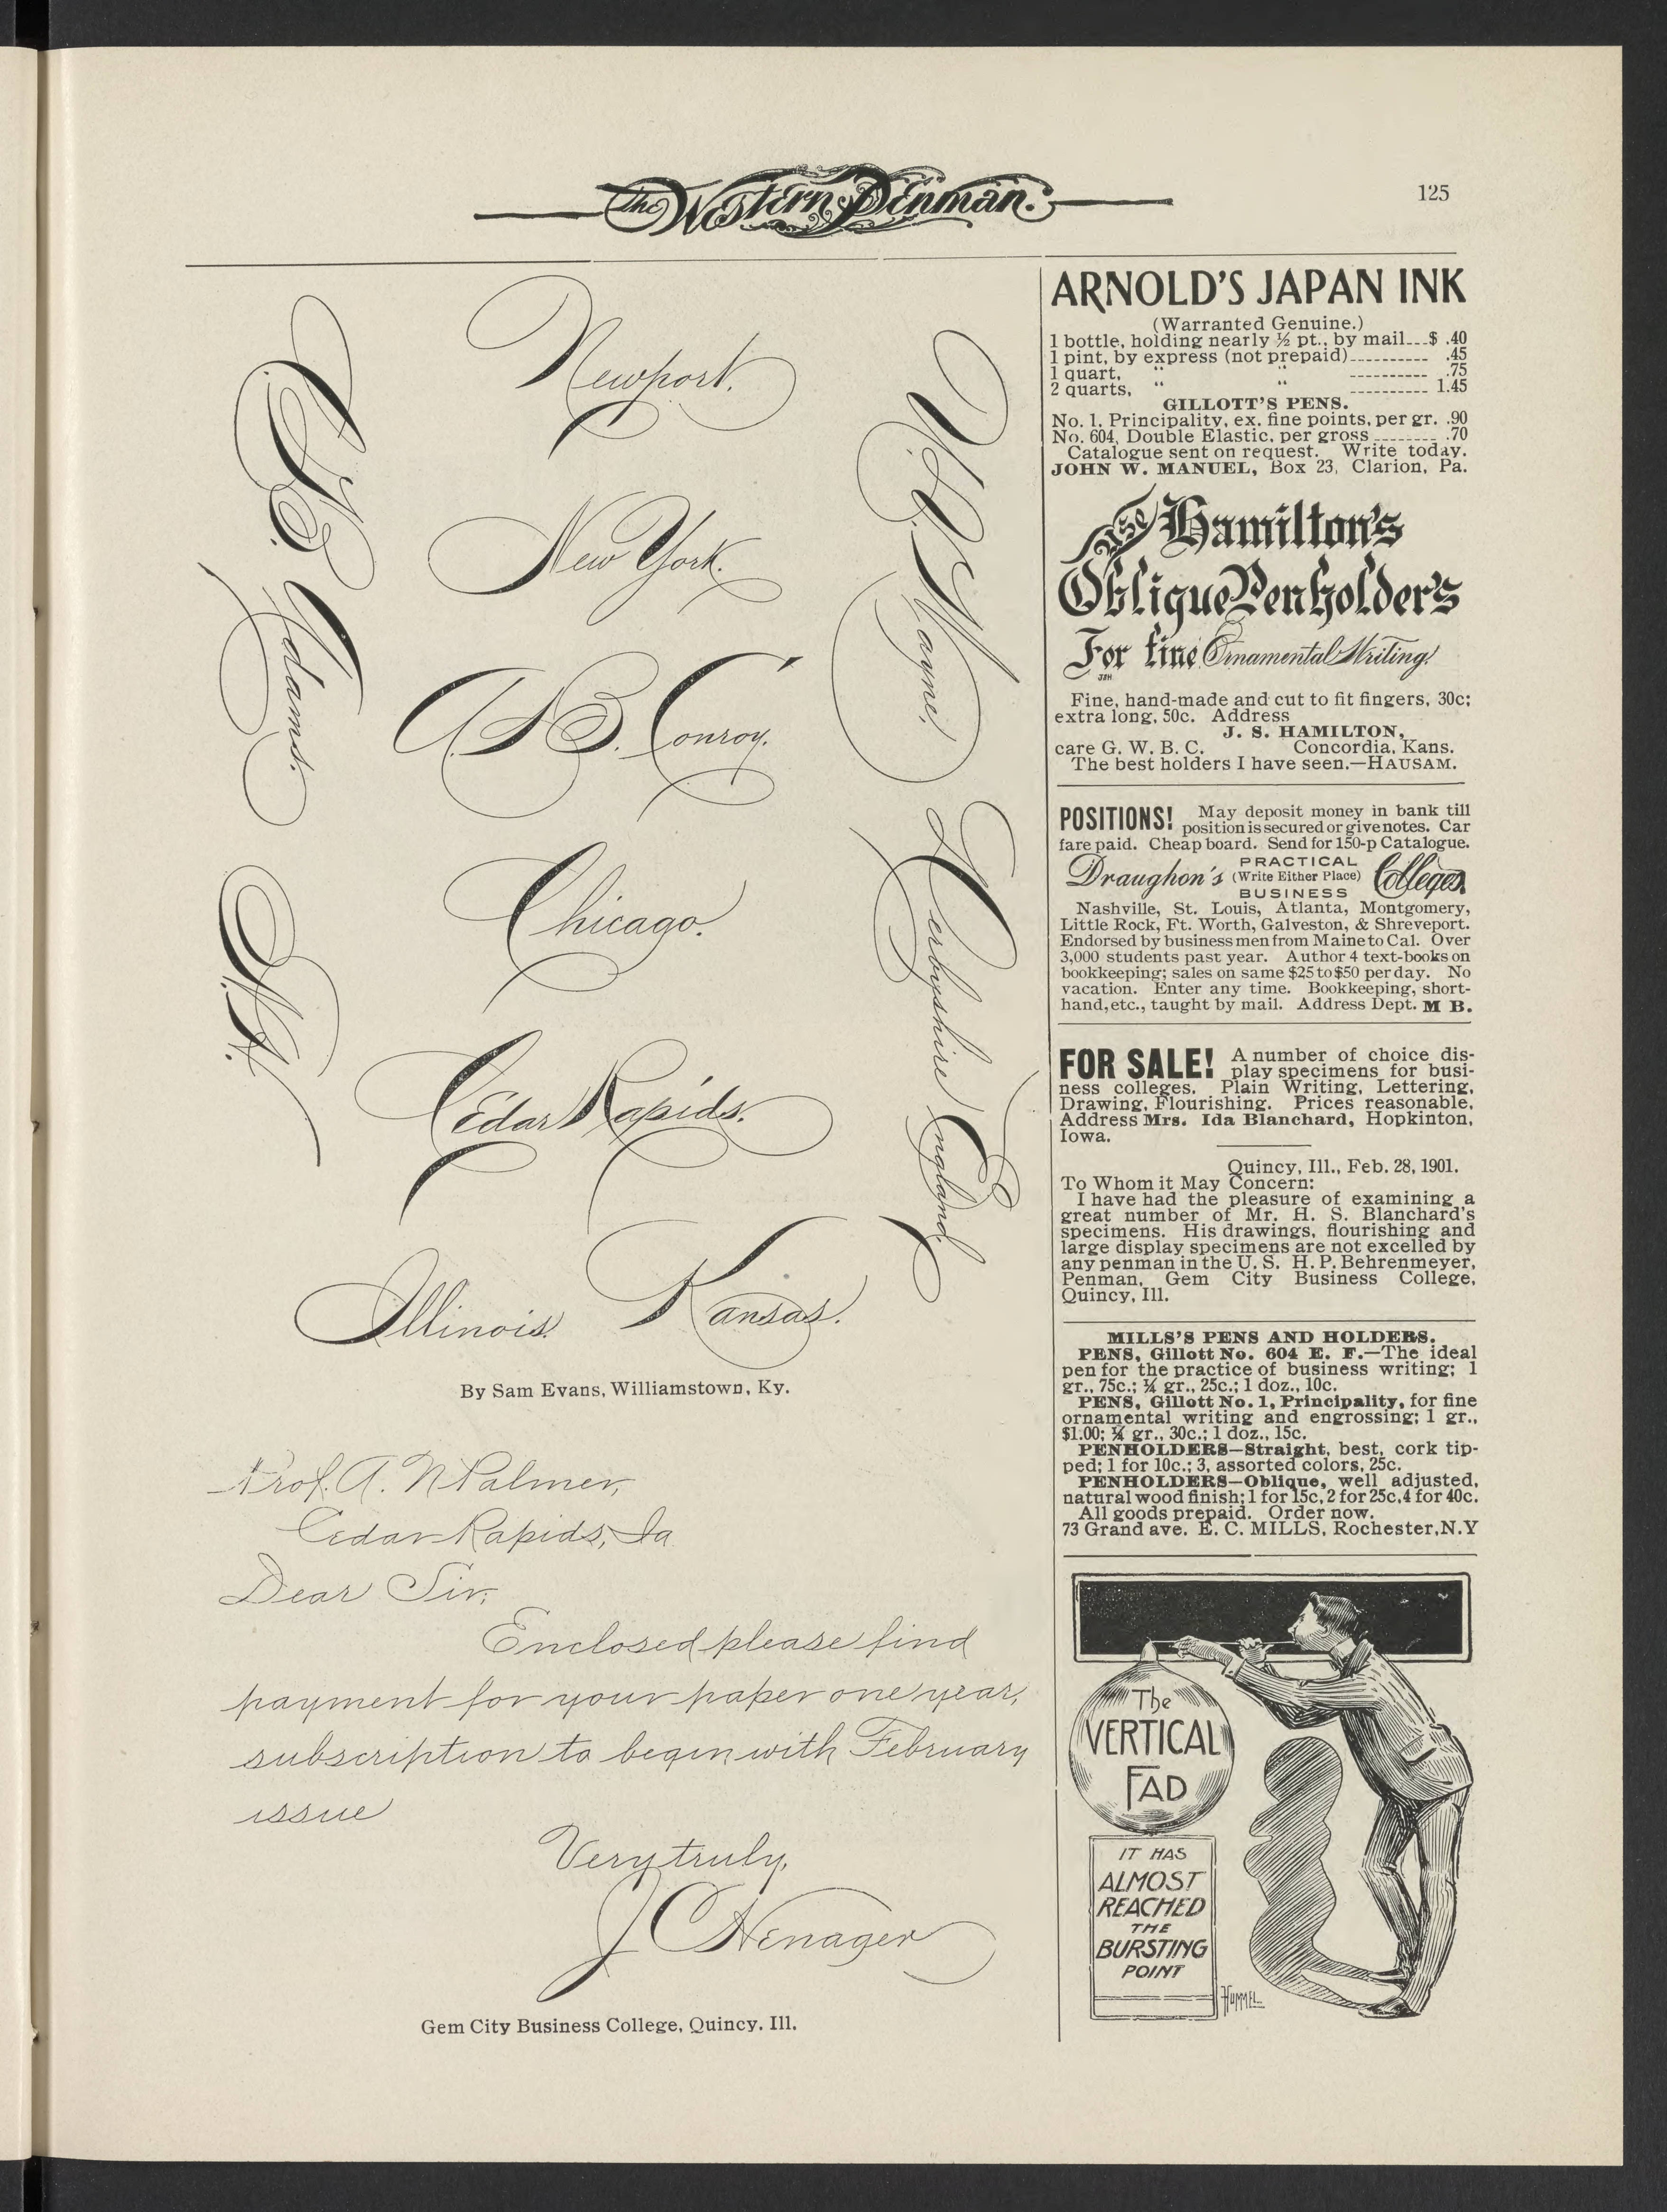 The Western Penman.
125
Newport.
New York.
A.B. Conroy.
Chicago.
Cedar Rapids.
Illinois.
Kansas.
Adams.
Wayne.
Derbyshire England.
By Sam Evans, Williamstown, Ky.
Prof. A. N. Palmer,
Cedar Rapids, Ia.
Dear Sir;
Enclosed please find
payment for your paper one year,
subscription to begin with February
issue
Very truly,
J C Henager
Gem City Business College, Quincy. Ill.
ARNOLD'S JAPAN INK
(Warranted Genuine.)
1 bottle, holding nearly ½ pt., by mail...$ .40
1 pint, by express (not prepaid).......... .45
1 quart, " " .......... .75
2 quarts, " " .......... 1.45
GILLOTT'S PENS.
No. 1. Principality, ex. fine points, per gr. .90
No. 604, Double Elastic, per gross ........ .70
Catalogue sent on request. Write today.
JOHN W. MANUEL, Box 23, Clarion, Pa.
Use Hamilton's
Oblique Penholder's
For fine Ornamental Writing!
JSH
Fine, hand-made and cut to fit fingers, 30c;
extra long, 50c. Address
J. S. HAMILTON,
care G. W. B. C. Concordia, Kans.
The best holders I have seen.—HAUSAM.
POSITIONS! May deposit money in bank till
position is secured or give notes. Car
fare paid. Cheap board. Send for 150-p Catalogue.
Draughon's PRACTICAL (Write Either Place) BUSINESS Colleges
Nashville, St. Louis, Atlanta, Montgomery,
Little Rock, Ft. Worth, Galveston, & Shreveport.
Endorsed by business men from Maine to Cal. Over
3,000 students past year. Author 4 text-books on
bookkeeping; sales on same $25 to $50 per day. No
vacation. Enter any time. Bookkeeping, short-
hand, etc., taught by mail. Address Dept. M B.
FOR SALE! A number of choice dis-
play specimens for busi-
ness colleges. Plain Writing, Lettering,
Drawing, Flourishing. Prices reasonable,
Address Mrs. Ida Blanchard, Hopkinton,
Iowa.
Quincy, Ill., Feb. 28, 1901.
To Whom it May Concern:
I have had the pleasure of examining a
great number of Mr. H. S. Blanchard's
specimens. His drawings, flourishing and
large display specimens are not excelled by
any penman in the U. S. H. P. Behrenmeyer,
Penman, Gem City Business College,
Quincy, Ill.
MILLS'S PENS AND HOLDERS.
PENS, Gillott No. 604 E. F.—The ideal
pen for the practice of business writing; 1
gr., 75c.; ¼ gr., 25c.; 1 doz., 10c.
PENS, Gillott No. 1, Principality, for fine
ornamental writing and engrossing; 1 gr.,
$1.00; ¼ gr., 30c.; 1 doz., 15c.
PENHOLDERS—Straight, best, cork tip-
ped; 1 for 10c.; 3, assorted colors, 25c.
PENHOLDERS—Oblique, well adjusted,
natural wood finish; 1 for 15c, 2 for 25c, 4 for 40c.
All goods prepaid. Order now.
73 Grand ave. E. C. MILLS, Rochester, N.Y
The
VERTICAL
FAD
IT HAS
ALMOST
REACHED
THE
BURSTING
POINT
HUMMEL